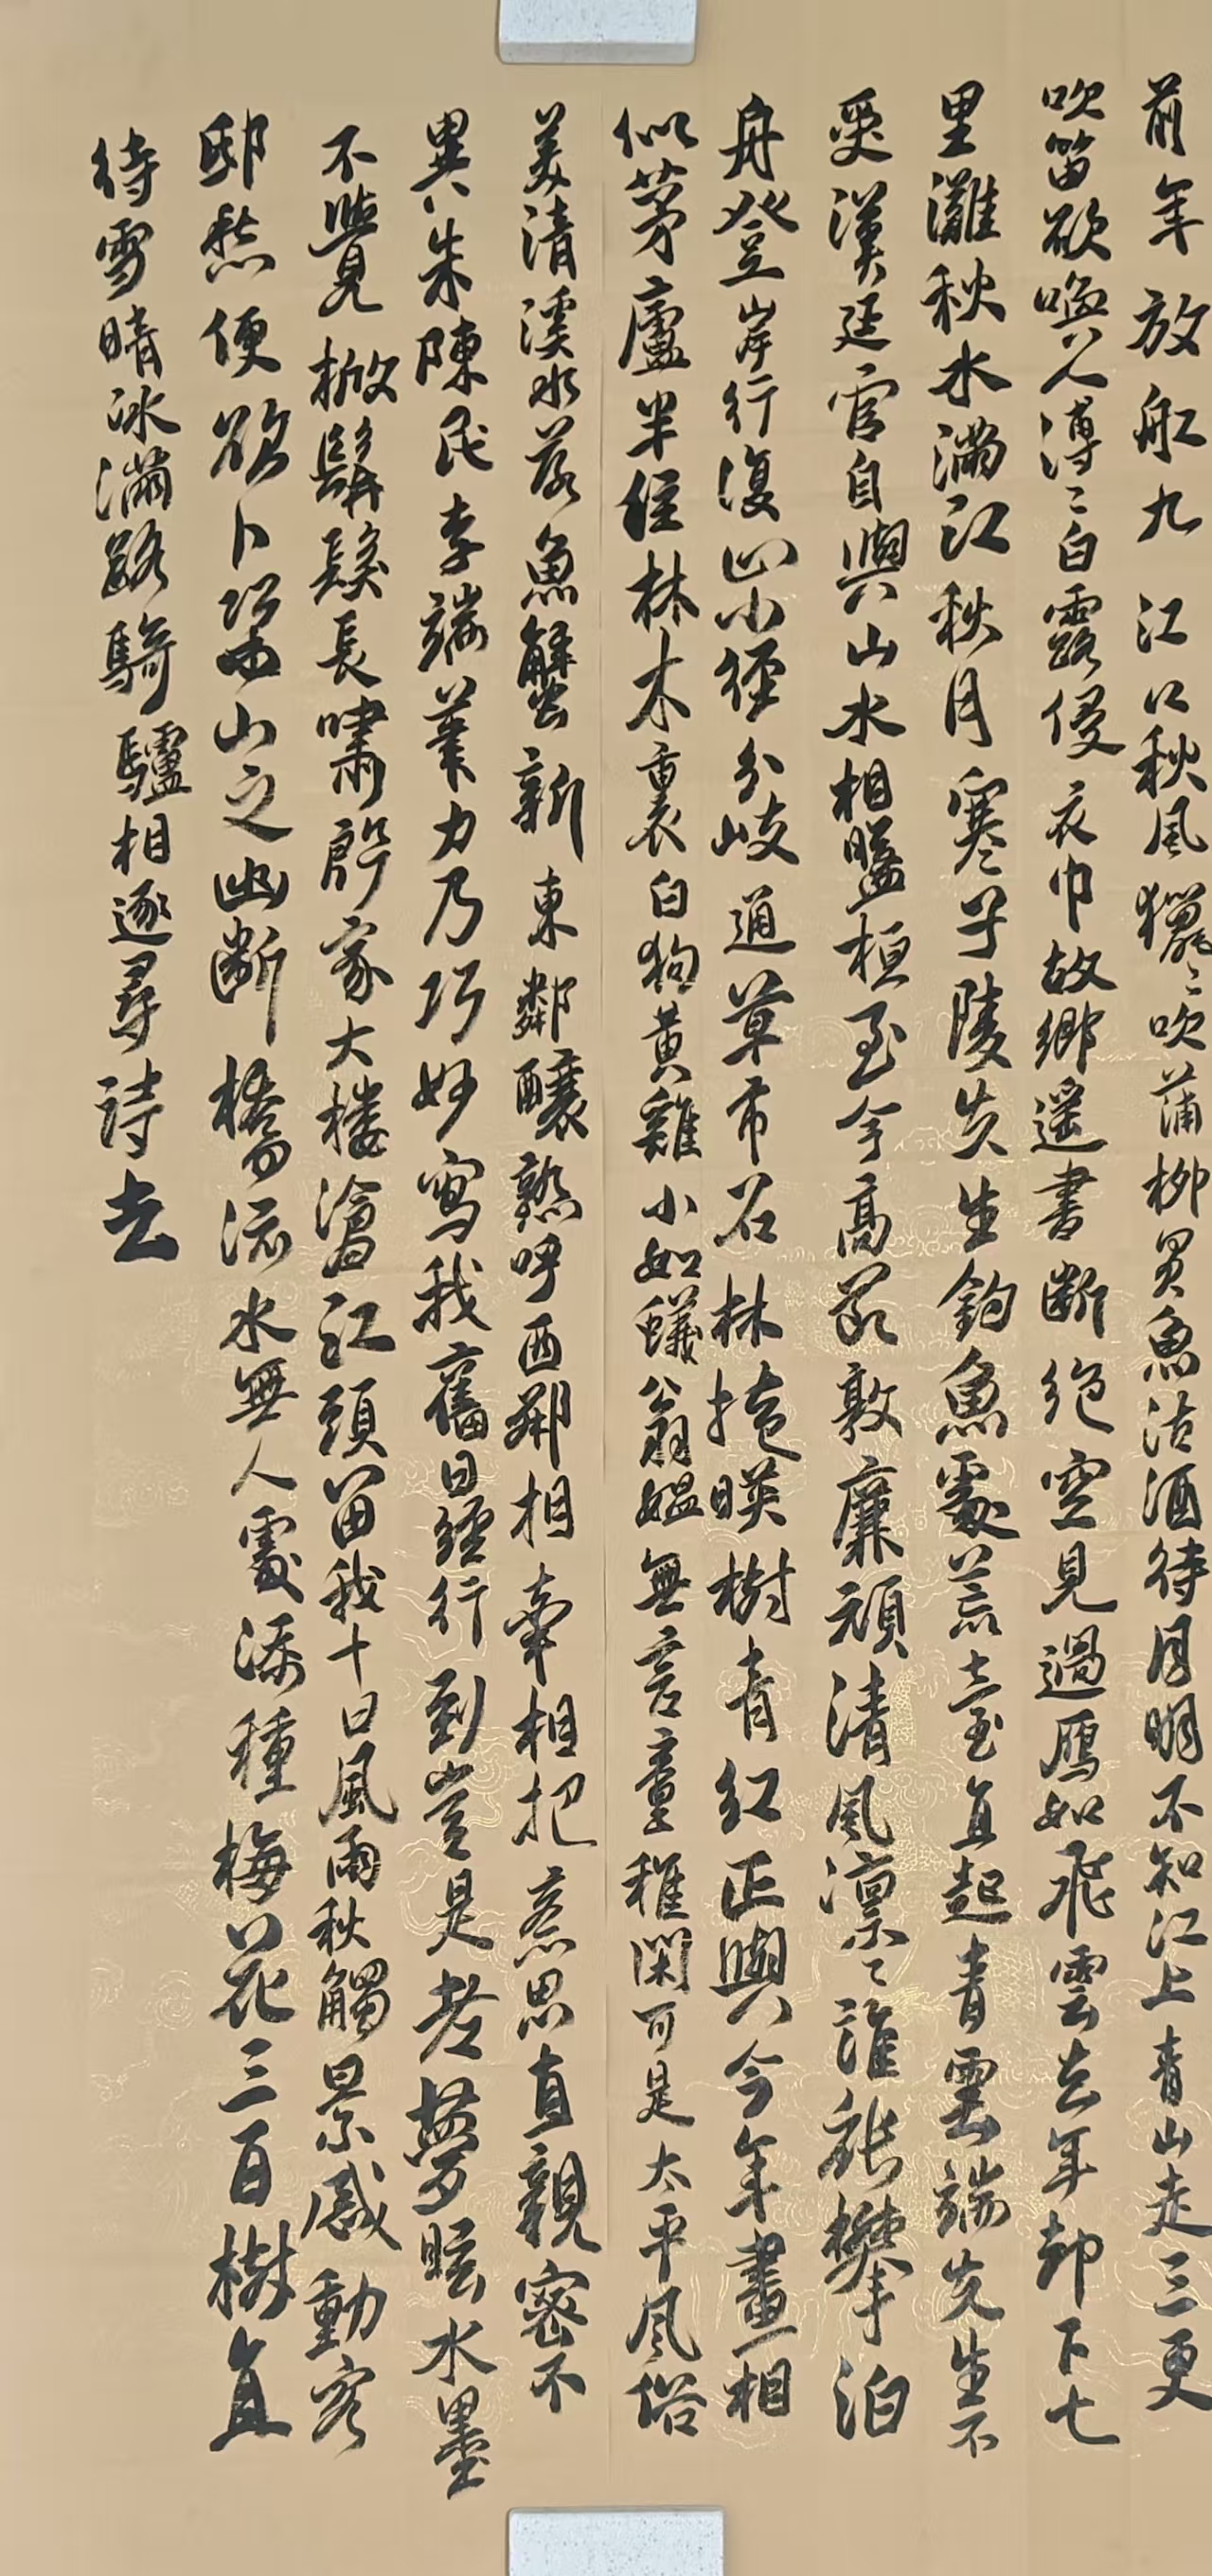 前年放船九江口秋風獵〻吹蒲柳買魚沽酒待月明不知江上青山走三更
吹笛欲喚人漙〻白露侵衣巾故鄉遙書斷絕空見過鴈如飛雲去年却下七
里灘秋水滿江秋月寒子陵先生釣魚處荒臺直起青雲端先生不
受漢廷官自與山水相盤桓至今高節敦廉頑清風凜〻誰能攀泊
舟登岸行復止小徑分岐通草市石林掩映樹青紅正與今年畫相
似茅廬半住林木裏白狗黃雞小如蟻翁媼無言童稚閑可是太平風俗
美清溪水落魚蟹新東鄰釀熟呼西鄰相牽相把意思直親密不
異朱陳民李端筆力乃巧妙寫我舊日經行到豈是老夢眩水墨
不覺掀髯發長嘯許家大樓滄江頭留我十日風雨秋觸景感動客
邸愁便欲卜築山之幽斷橋流水無人處添種梅花三百樹直
待雪晴冰滿路騎驢相逐尋詩去